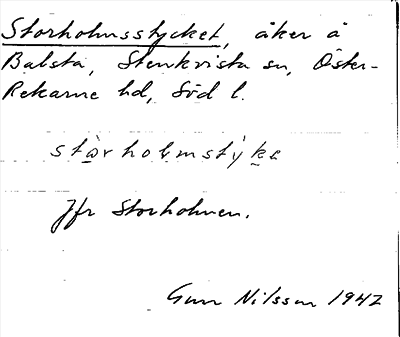 Storholmsstycket, åker å
Balsta, Stenkvista sn, Öster-
Rekarne hd, Söd l.
stårholmstyke
Jfr Storholmen.
Gun Nilsson 1942